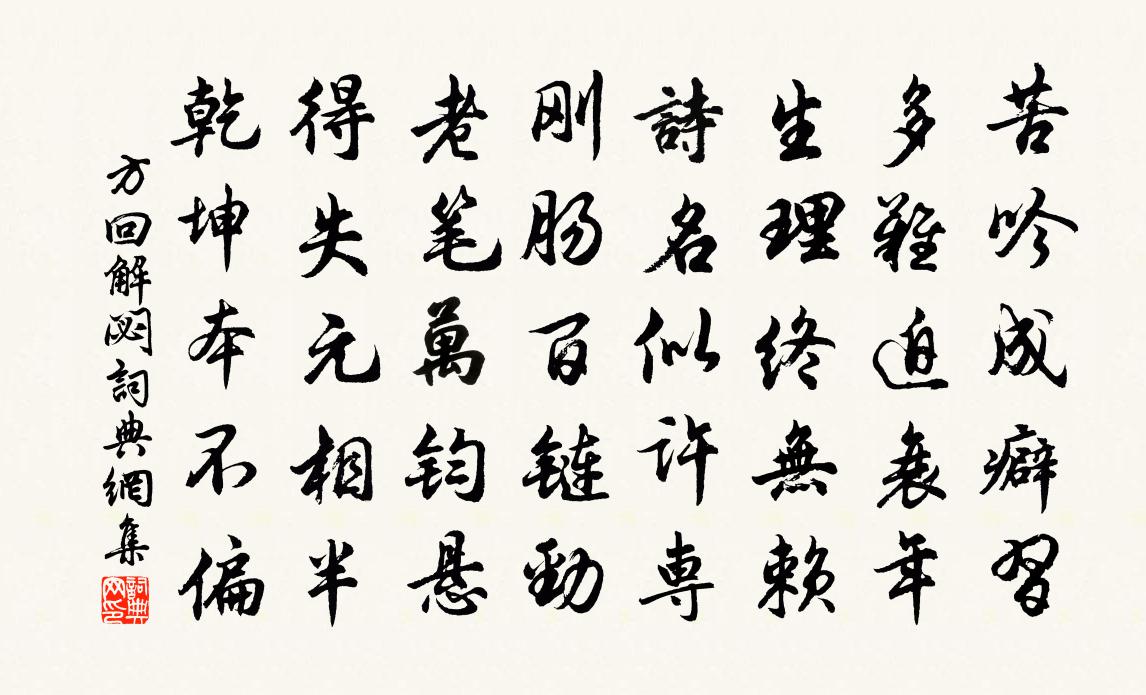 苦吟成癖習
多難迫衰年
生理終無賴
詩名似許專
剛腸百鏈勁
老笔萬鈞悬
得失元相半
乾坤本不偏
方回解悶詞典網集
詞典